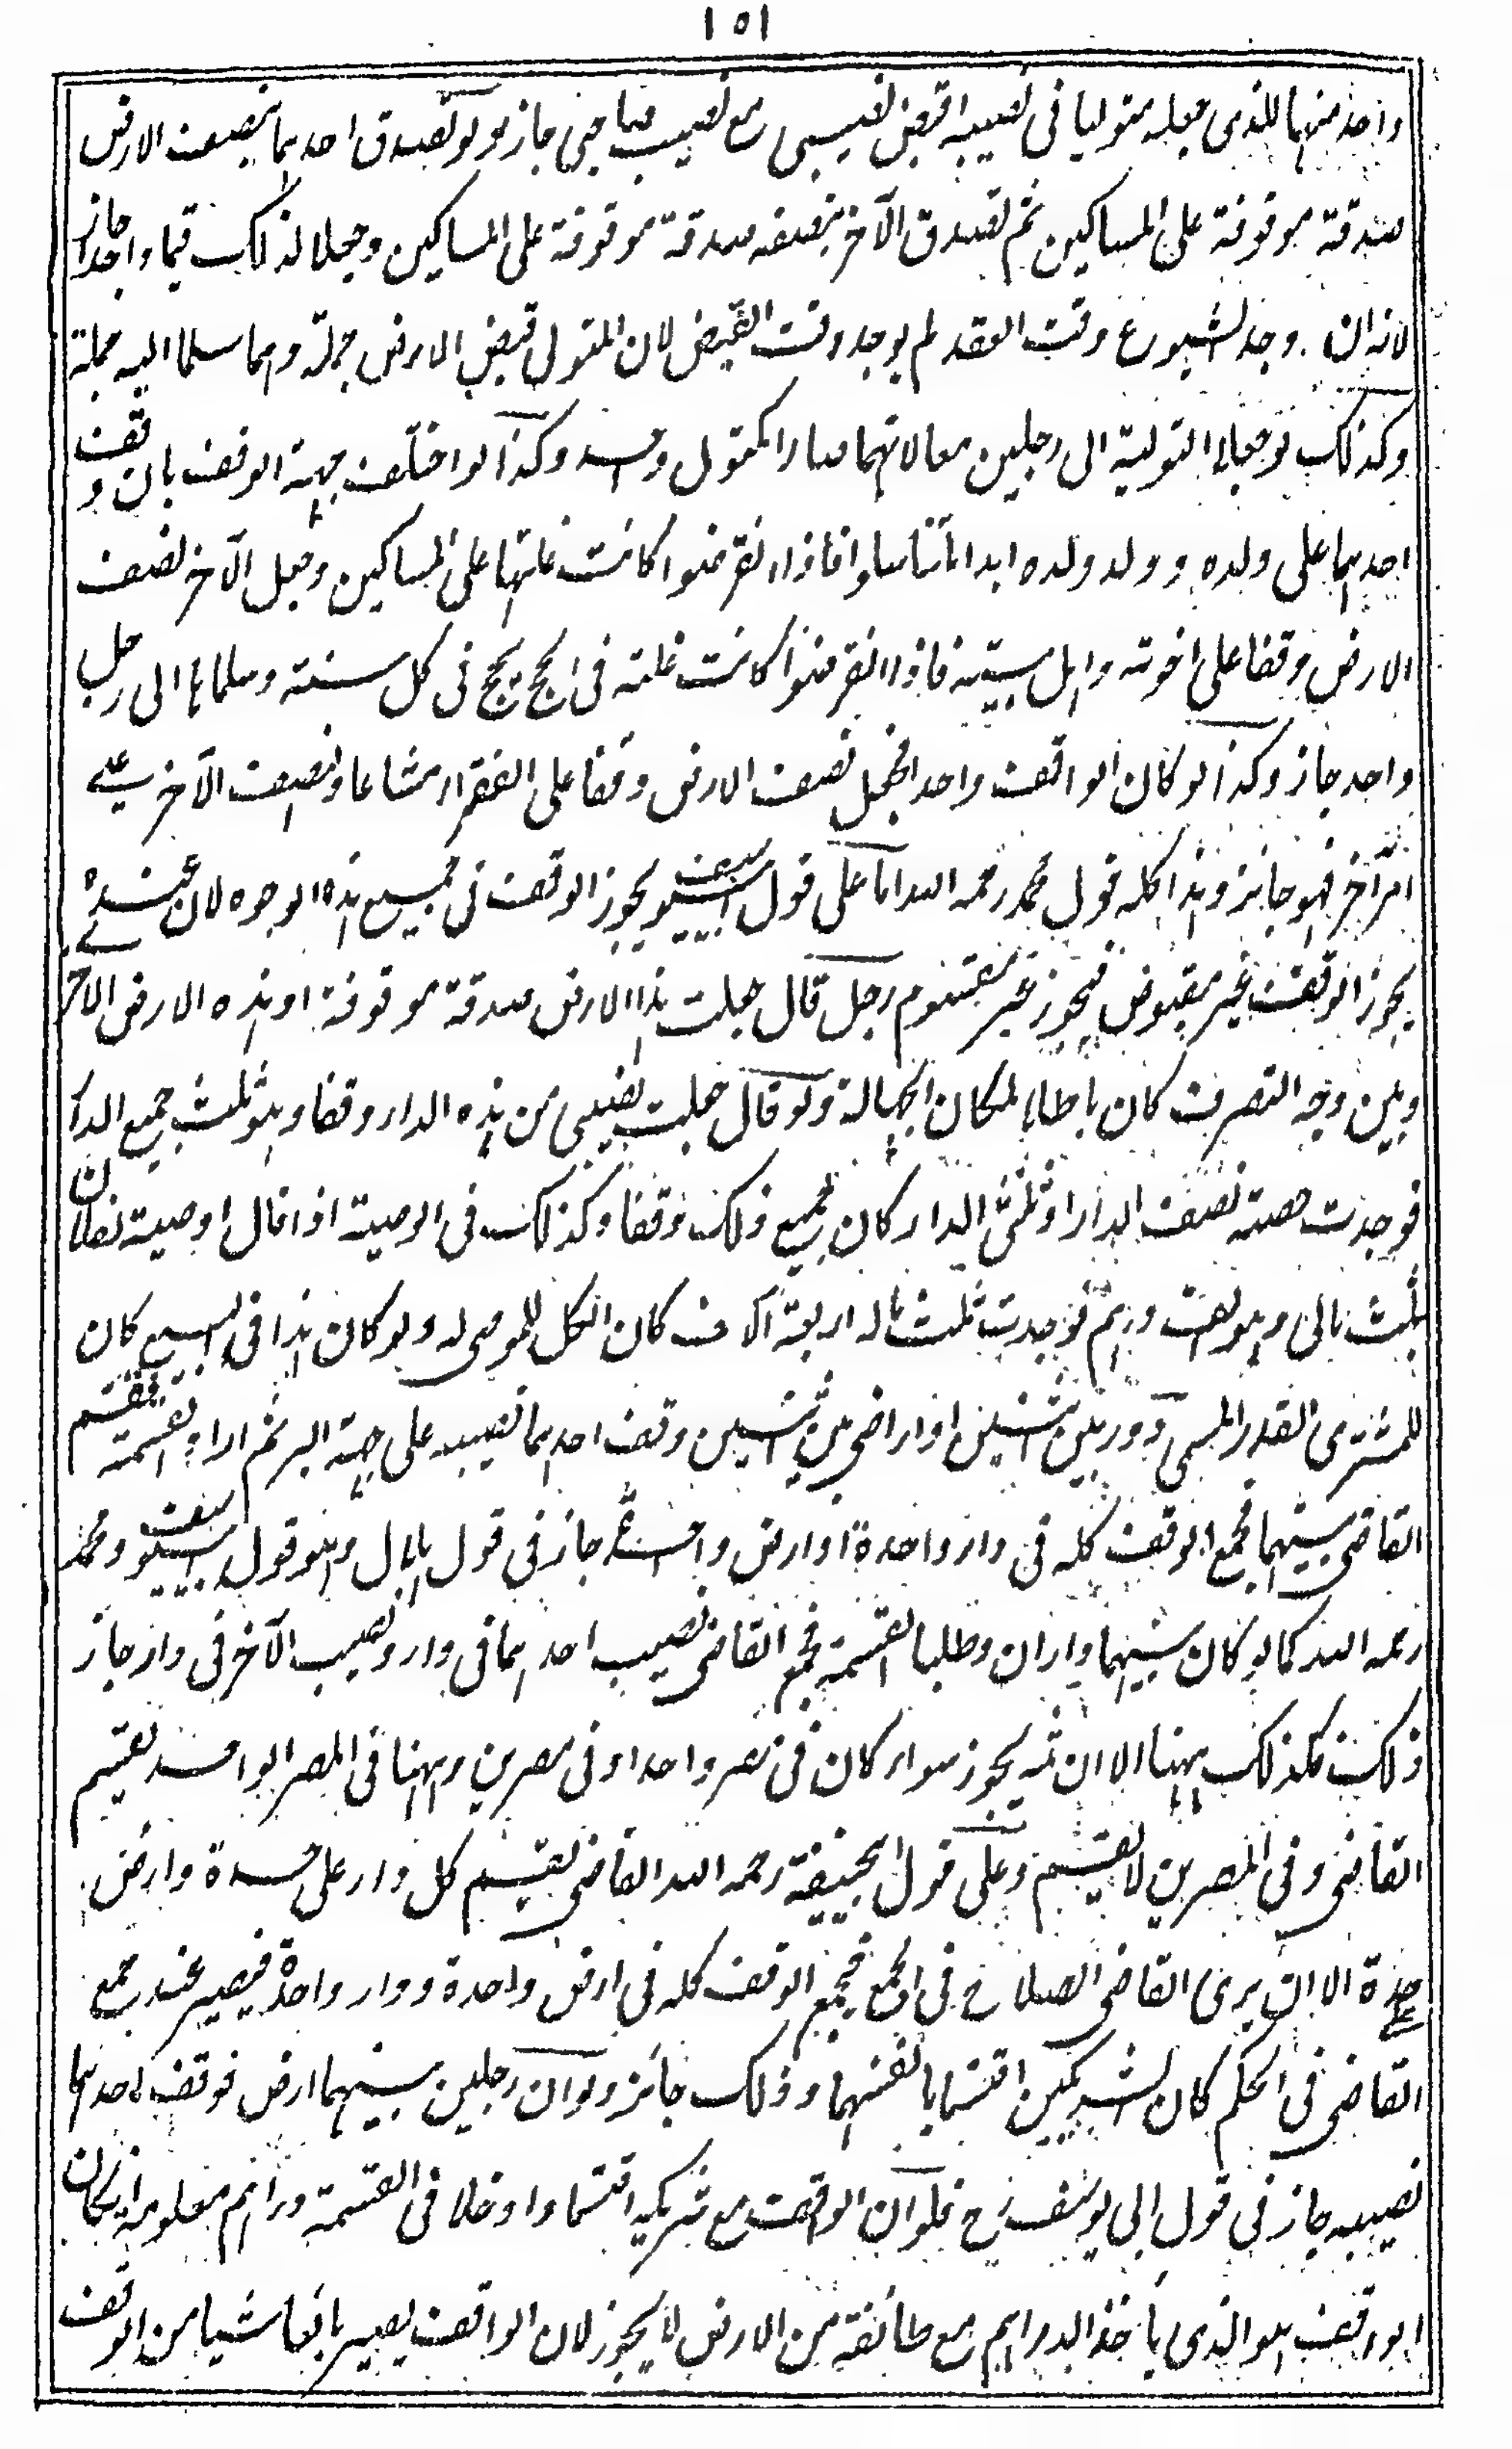 ١٥١
واحد منهما للذى جعله متوليا فى نصيبه اقبض نصيبى مع نصيب صاحبى جاز ولو تصدق احدهما بنصف الارض
صدقة موقوفة على المساكين ثم تصدق الآخر بنصفه صدقة موقوفة على المساكين وجعلا لذلك قيما واحدا جاز
لانه ان وجد الشيوع وقت العقد لم يوجد وقت القبض لان المتولى قبض الارض جملة وهما سلما اليه جملة
وكذلك لو جعلا التولية الى رجلين معا لانهما صارا كمتول واحد وكذا لو اختلف جهة الوقف بان وقف
احدهما على ولده وولد ولده ابدا ما تناسلوا فاذا انقرضوا كانت غلتها على المساكين وجعل الآخر نصف
الارض وقفا على اخوته واهل بيته فاذا انقرضوا كانت غلته فى الحج يحج فى كل سنة وسلماها الى رجل
واحد جاز وكذا لو كان الواقف واحدا فجعل نصف الارض وقفا على الفقراء مشاعا ونصف الآخر على
امر آخر فهو جائز وهذا كله قول محمد رحمه الله اما على قول ابيوسف يجوز الوقف فى جميع هذه الوجوه لان عنده
يجوز الوقف غير مقبوض فيجوز غير مقسوم رجل قال جعلت هذا الارض صدقة موقوفة او هذه الارض الاخرى
وبين وجه التصرف كان باطلا لمكان الجهالة ولو قال جعلت نصيبى من هذه الدار وقفا وهو ثلث جميع الدار
فوجدت حصته نصف الدار او ثلثى الدار كان جميع ذلك وقفا وكذلك فى الوصية اذا قال اوصيت لفلان
بثلث مالى وهو الف درهم فوجدت ثلث ماله اربعة آلاف كان الكل للموصى له ولو كان هذا فى البيع كان
للمشترى القدر المسمى دور بين اثنين او اراضى بين اثنين وقف احدهما نصيبه على جهة البر ثم ارادوا القسمة فقسم
القاضى بينهما فجمع الوقف كله فى دار واحدة او ارض واحدة جاز فى قول هلال وهو قول ابيوسف ومحمد
رحمه الله كما لو كان بينهما داران وطلبا القسمة فجمع القاضى نصيب احدهما فى دار ونصيب الآخر فى دار جاز
ذلك فكذلك ههنا الا ان ثمه يجوز سواء كان فى مصر واحد او فى مصرين وههنا فى المصر الواحد تقسيم
القاضى وفى المصرين لا يقسم وعلى قول ابيحنيفة رحمه الله القاضى يقسم كل دار على حدة وارض
على حدة الا ان يرى القاضى الصلاح فى الجمع فيجمع الوقف كله فى ارض واحدة ودار واحدة فيصير عنده جمع
القاضى فى الحكم كان الشريكين اقتسما بانفسهما وذلك جائز ولو ان رجلين بينهما ارض فوقف احدهما
نصيبه جاز فى قول ابى يوسف رح فلو ان الواقف مع شريكه اقتسما وادخلا فى القسمة دراهم معلومة ان كان
الواقف هو الذى ياخذ الدراهم مع طائفة من الارض لا يجوز لان الواقف يصير بائعا شيئا من الوقف